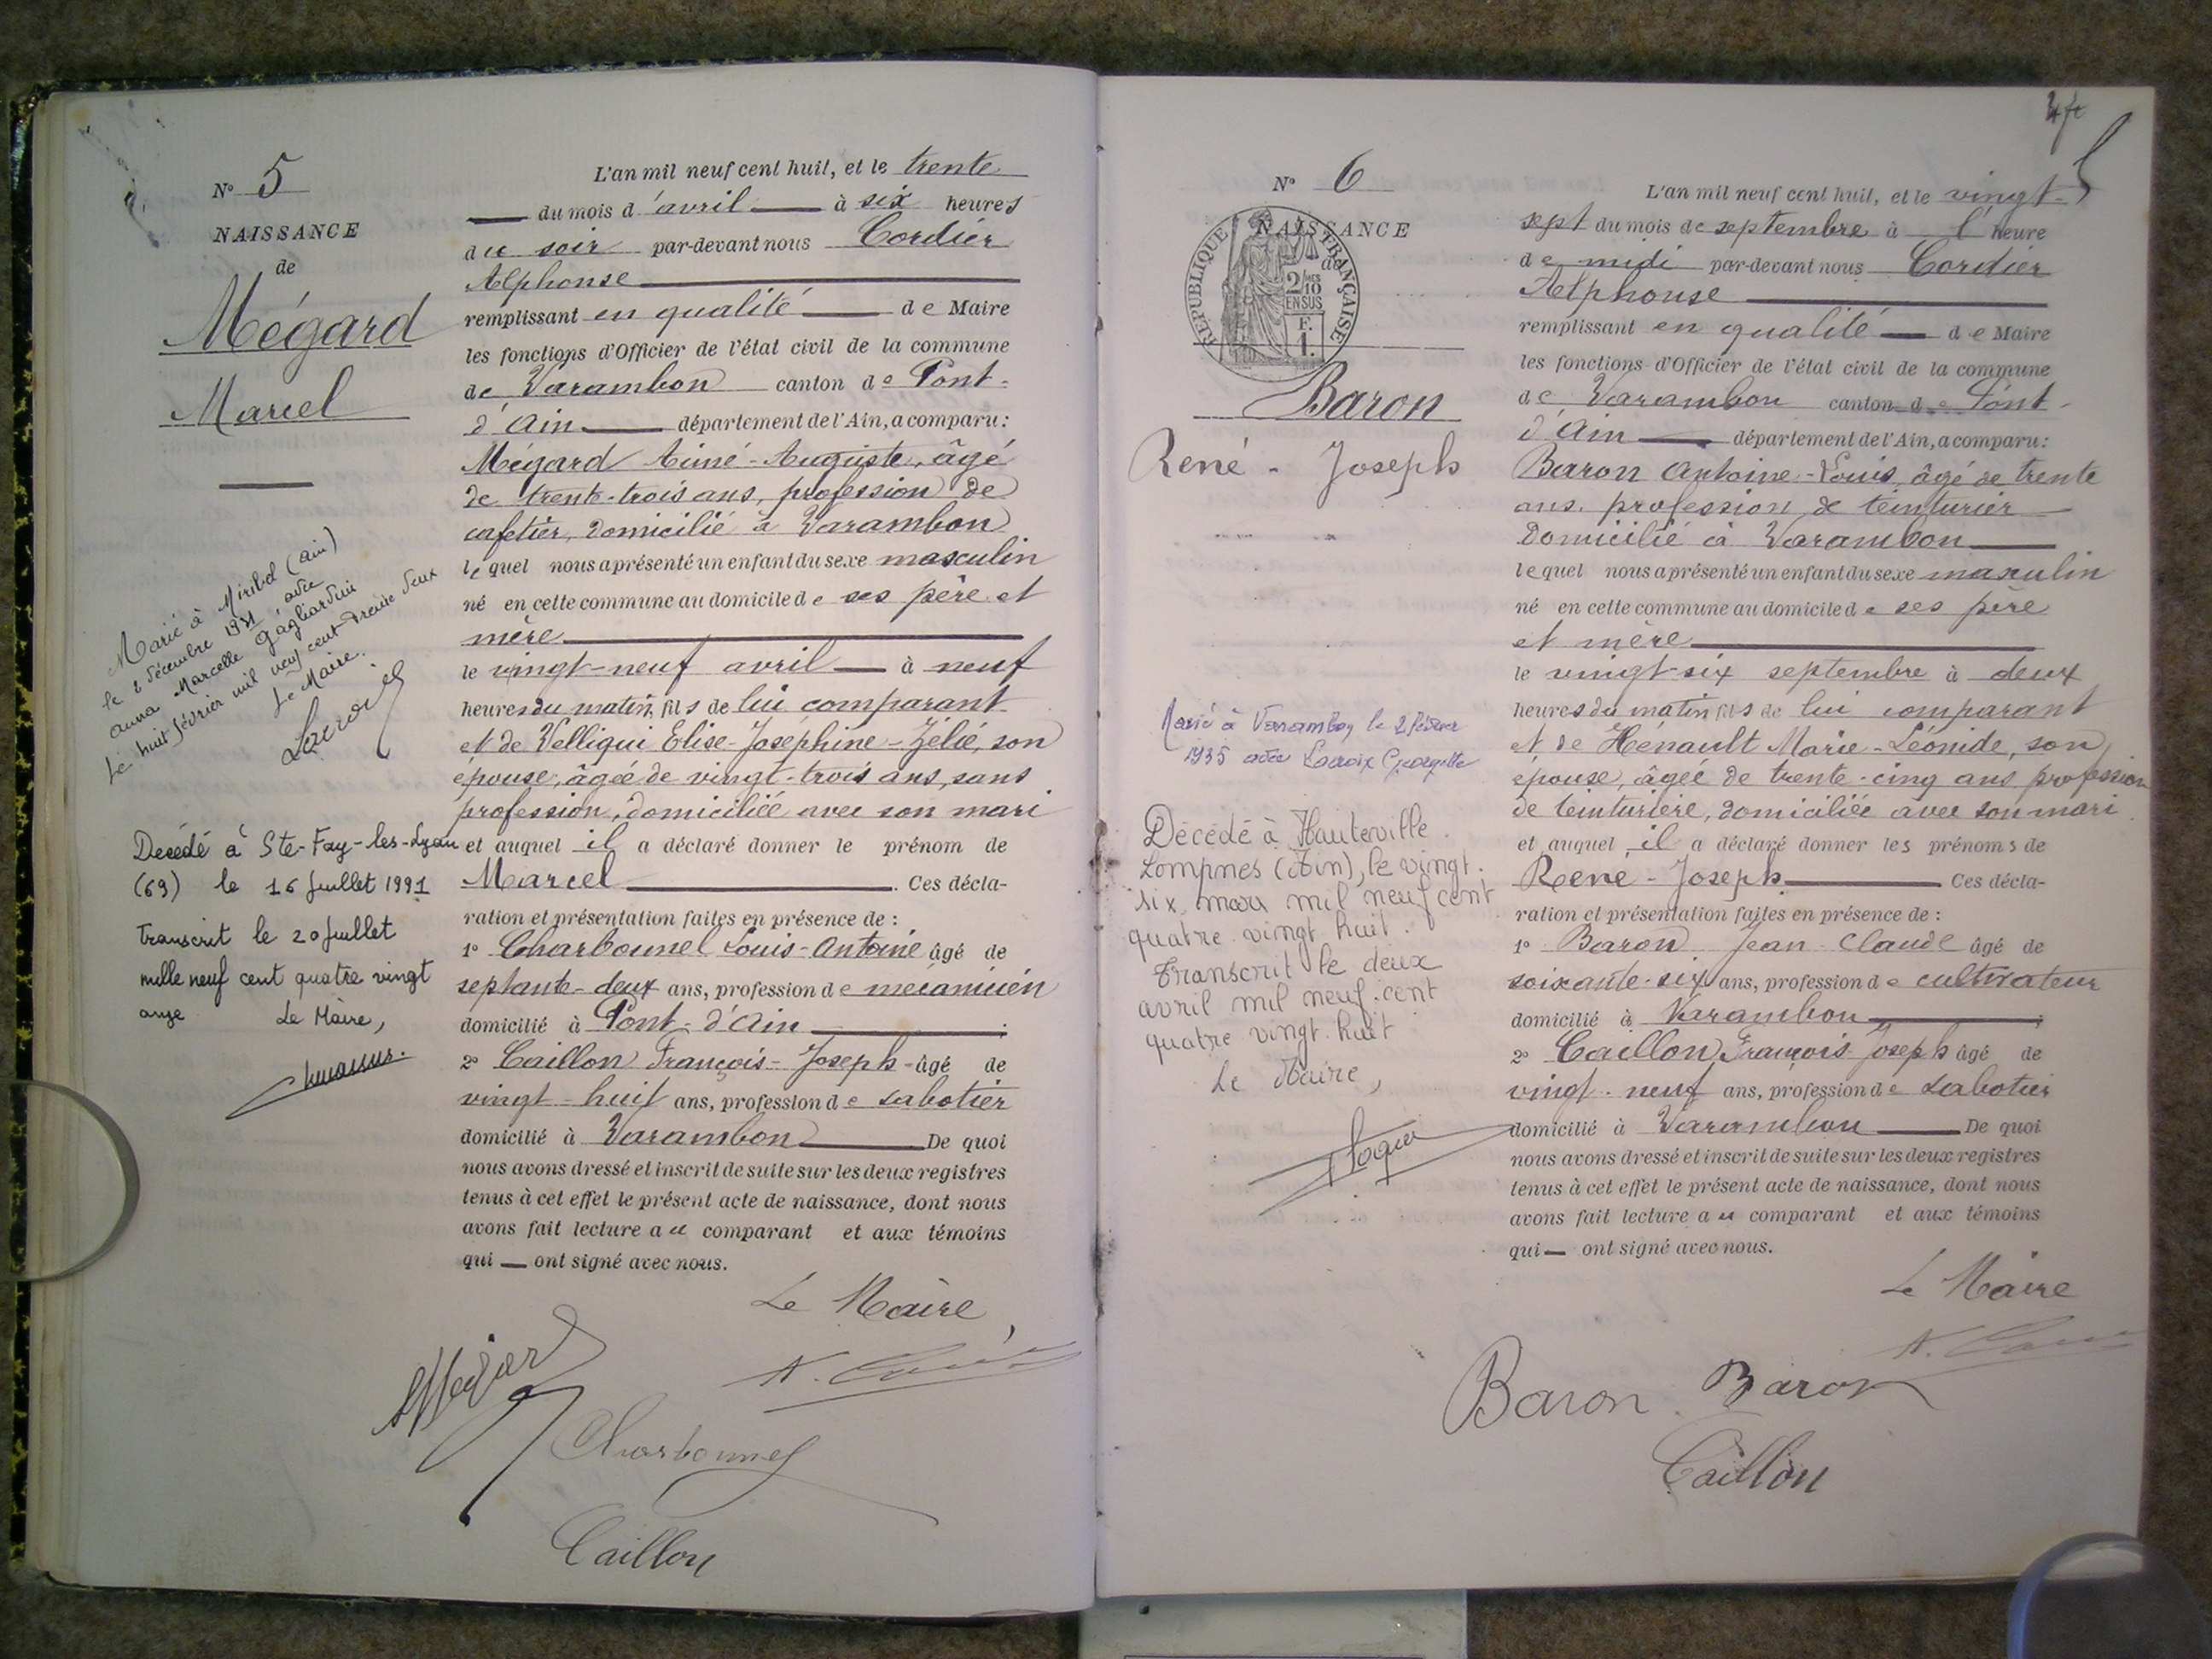 N° 5
NAISSANCE
de
Mégard
Marcel
Marié à Miribel (ain)
le 2 décembre 1931 avec
anna Marcelle Gagliardini
Le huit février mil neuf cent trente deux
Le Maire.
Décédé à Ste-Foy-les-Lyon
(69) le 16 Juillet 1991
Transcrit le 20 Juillet
mille neuf cent quatre vingt
onze Le Maire,
L'an mil neuf cent huit, et le trente
du mois d'avril à six heures
du soir par-devant nous Cordier
Alphonse
remplissant en qualité de Maire
les fonctions d'Officier de l'état civil de la commune
de Varambon canton de Pont-
d'Ain département de l'Ain, a comparu:
Mégard Aimé-Auguste, âgé
de trente-trois ans, profession de
cafetier, domicilié à Varambon
lequel nous a présenté un enfant du sexe masculin
né en cette commune au domicile de ses père et
mère
le vingt-neuf avril à neuf
heures du matin, fils de lui comparant
et de Velliqui Elise-Joséphine-Zélie, son
épouse, âgée de vingt-trois ans, sans
profession, domiciliée avec son mari
et auquel il a déclaré donner le prénom de
Marcel. Ces décla-
ration et présentation faites en présence de :
1° Charbonnel Louis-Antoine âgé de
septante-deux ans, profession de mécanicien
domicilié à Pont-d'Ain ;
2° Caillon François-Joseph - âgé de
vingt-huit ans, profession de sabotier
domicilié à Varambon De quoi
nous avons dressé et inscrit de suite sur les deux registres
tenus à cet effet le présent acte de naissance, dont nous
avons fait lecture au comparant et aux témoins
qui — ont signé avec nous.
Le Maire,
Charbonnel
Caillon
N° 6
NAISSANCE
de
REPUBLIQUE FRANÇAISE
2/10
EN SUS
F.
1.
Baron
René - Joseph
Marié à Varambon le 2 février
1935 avec Lacroix Georgette
Décédé à Hauteville
Lompnes (Ain), le vingt
six mars mil neuf cent
quatre vingt huit.
Transcrit le deux
avril mil neuf cent
quatre vingt huit
Le Maire,
L'an mil neuf cent huit, et le vingt-
sept du mois de septembre à l'heure
de midi par-devant nous Cordier
Alphonse
remplissant en qualité de Maire
les fonctions d'Officier de l'état civil de la commune
de Varambon canton de Pont-
d'Ain département de l'Ain, a comparu:
Baron Antoine-Louis, âgé de trente
ans, profession de teinturier
Domicilié à Varambon
lequel nous a présenté un enfant du sexe masculin
né en cette commune au domicile de ses père
et mère
le vingt-six septembre à deux
heures du matin, fils de lui comparant
et de Hénault Marie-Léonide, son
épouse, âgée de trente-cinq ans profession
de teinturière, domiciliée avec son mari
et auquel il a déclaré donner les prénoms de
René-Joseph Ces décla-
ration et présentation faites en présence de :
1° Baron Jean Claude âgé de
soixante-six ans, profession de cultivateur
domicilié à Varambon ;
2° Caillon François Joseph âgé de
vingt-neuf ans, profession de sabotier
domicilié à Varambon De quoi
nous avons dressé et inscrit de suite sur les deux registres
tenus à cet effet le présent acte de naissance, dont nous
avons fait lecture au comparant et aux témoins
qui — ont signé avec nous.
Le Maire
Baron Baron
Caillon